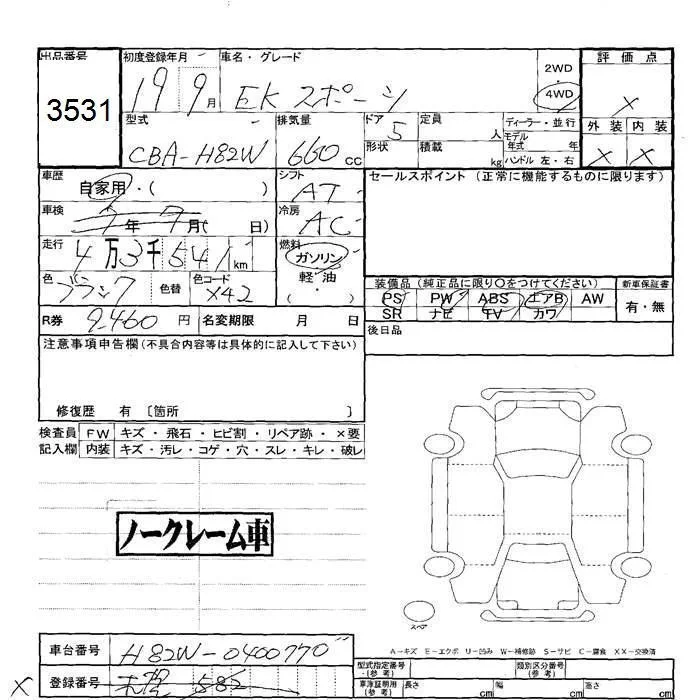 出品番号 初度登録年月 車名・グレード 2WD・4WD 評価点
3531 19 9月 EK スポーツ ×
型式 排気量 ドア 定員 人 ディーラー・並行 外装 内装
CBA-H82W 660cc 5 モデル年式 年 × ×
形状 積載 kg ハンドル 左・右
車歴 自家用・( ) シフト AT セールスポイント (正常に機能するものに限ります)
車検 7年7月( 日) 冷房 AC
走行 4万3千541km 燃料 ガソリン 軽・油 ・( )
色 ブラック 色替 色コード X42 装備品(純正品に限り〇をつけてください) 新車保証書
PS PW ABS エアB AW 有・無
SR ナビ TV カワ
R券 9,460円 名変期限 月 日 後日品
注意事項申告欄(不具合内容等は具体的に記入して下さい)
修復歴 有 〔箇所 〕
検査員 FW キズ・飛石・ヒビ割・リペア跡・×要
記入欄 内装 キズ・汚レ・コゲ・穴・スレ・キレ・破レ
ノークレーム車
スペア
A-キズ E-エクボ U-凹み W-補修跡 S-サビ C-腐食 XX-交換済
車台番号 H82W-0400770
登録番号 582
型式指定番号(参考) 類別区分番号(参考)
車庫証明用(参考) 長さ cm 幅 cm 高さ cm
×